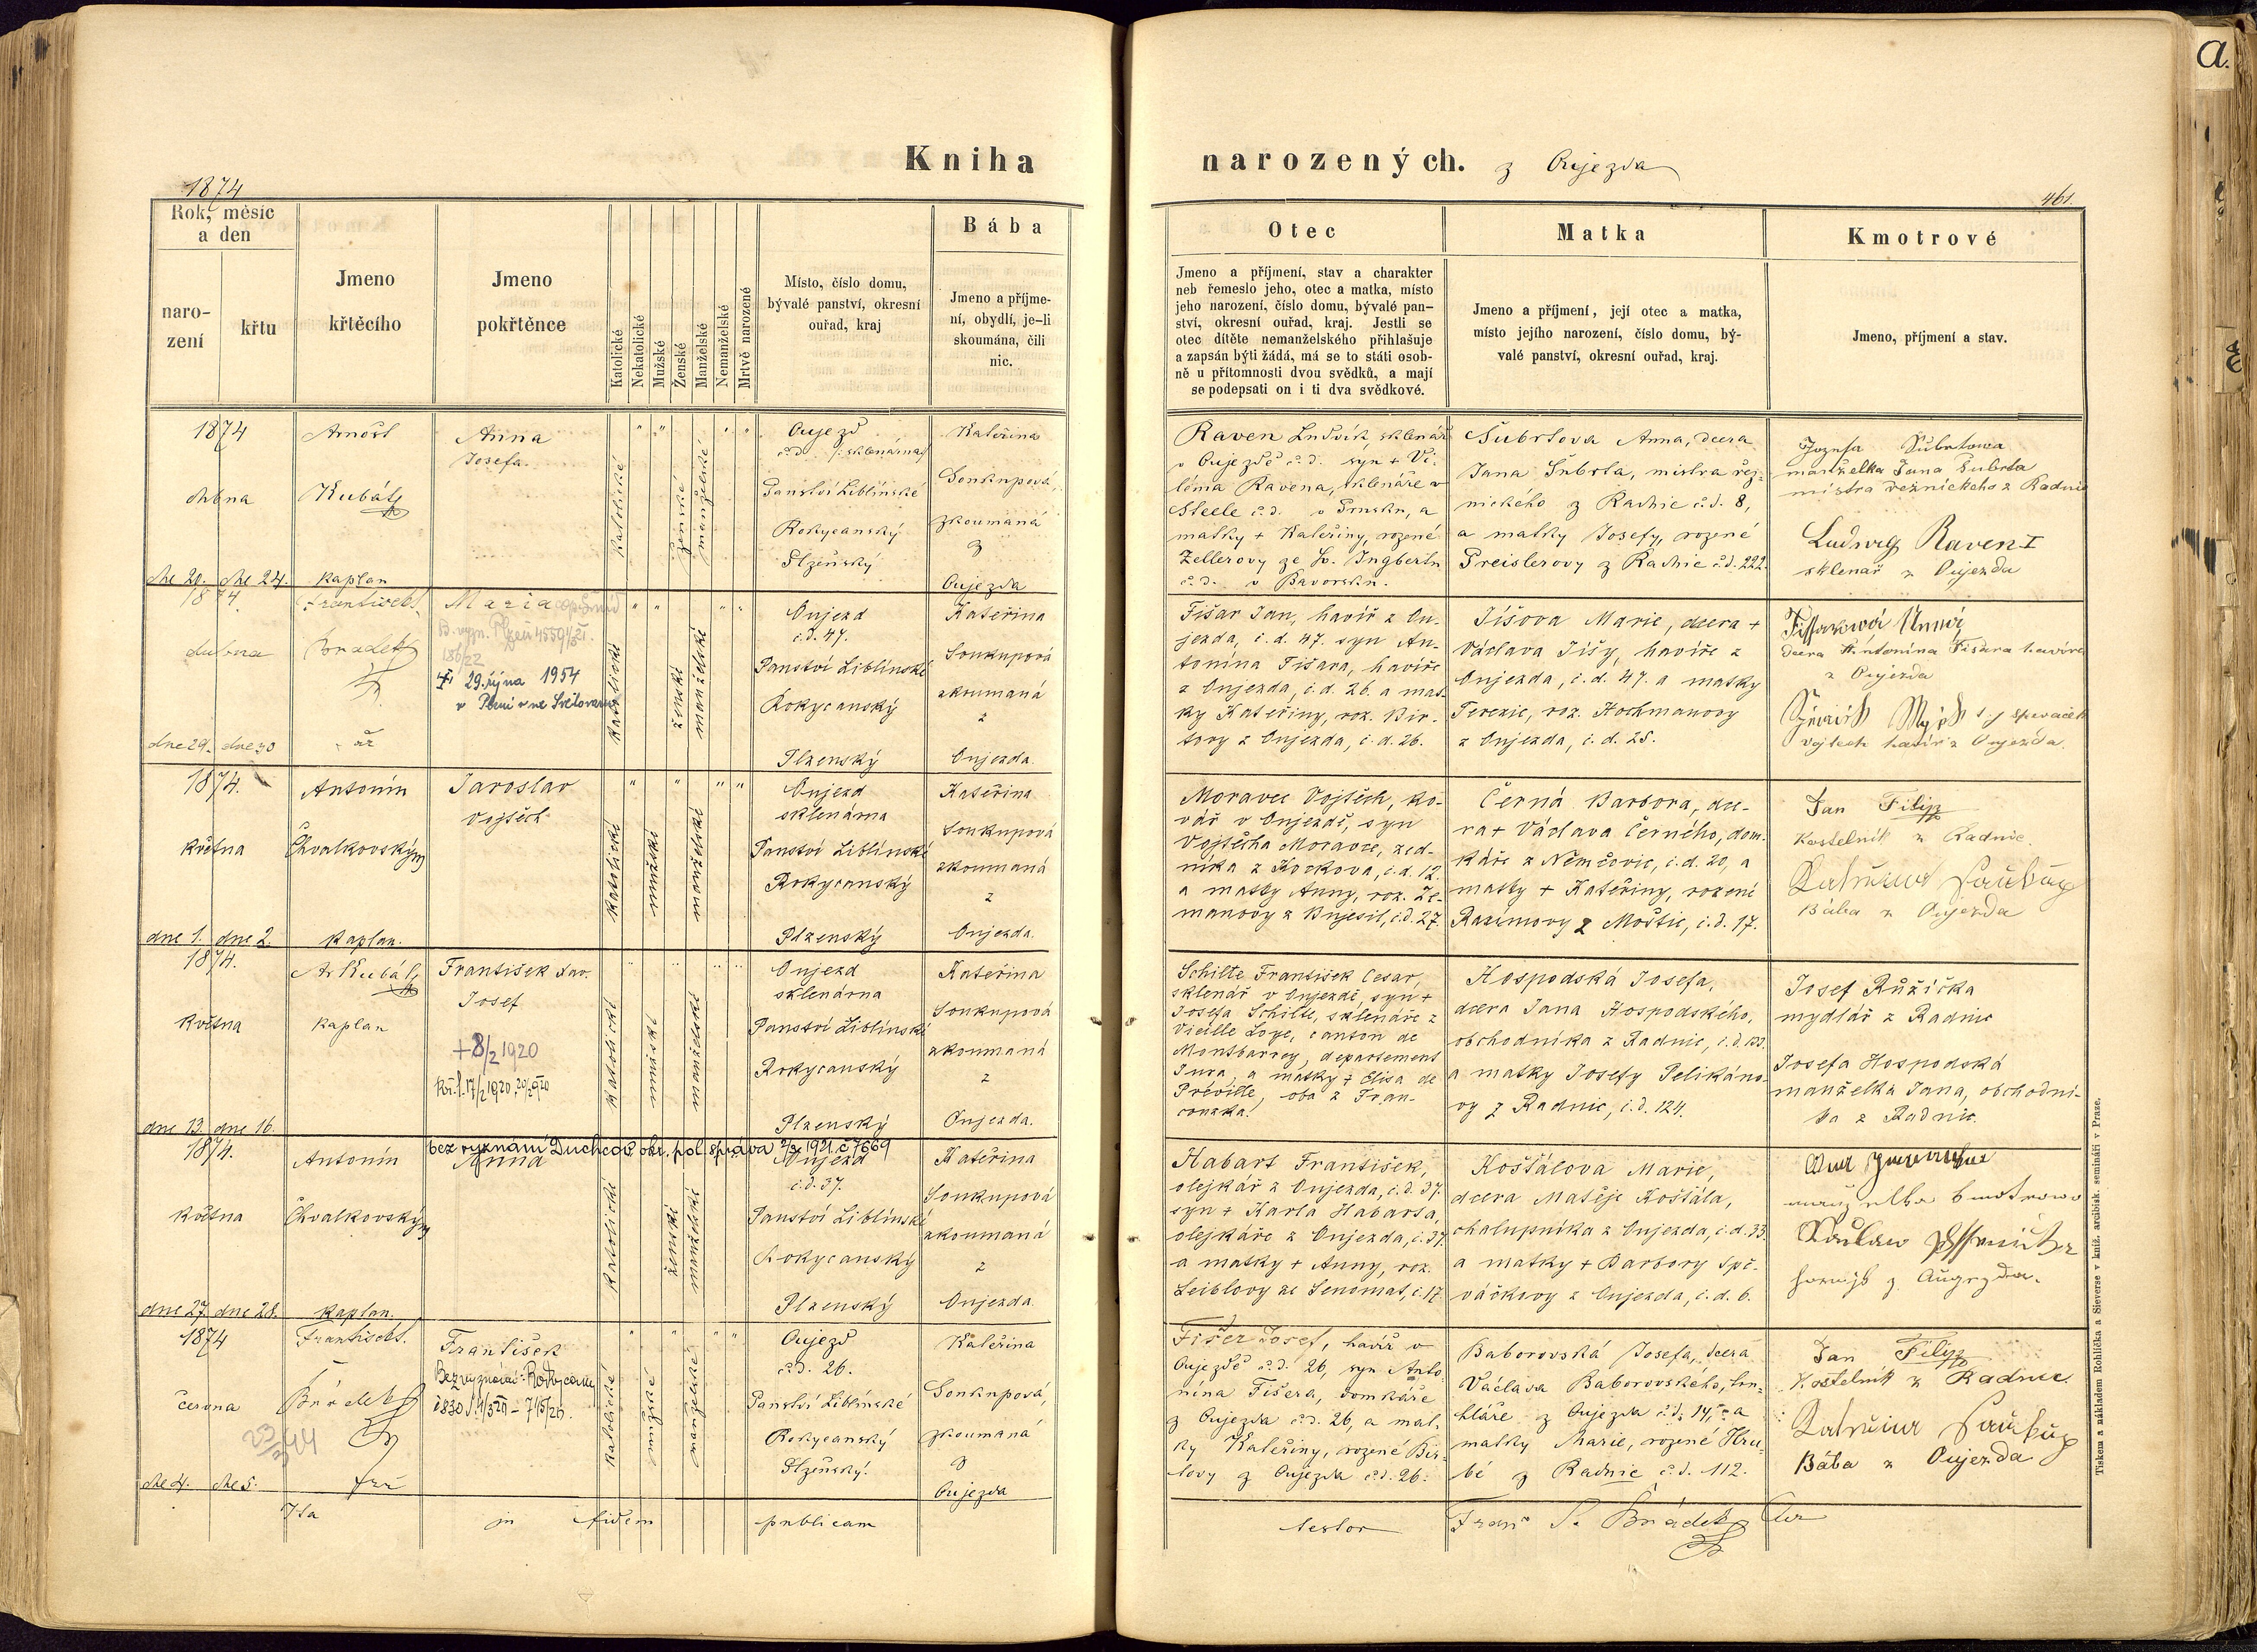 a.
Kniha narozených. z Oujezda
1874
461.
Rok, měsíc
a den
naro-
zení
křtu
Jmeno
křtěcího
Jmeno
pokřtěnce
Katolické
Nekatolické
Mužské
Ženské
Manželské
Nemanželské
Mrtvě narozené
Místo, číslo domu,
bývalé panství, okresní
ouřad, kraj
Bába
Jmeno a příjme-
ní, obydlí, je-li
skoumána, čili
nic.
Otec
Jmeno a příjmení, stav a charakter
neb řemeslo jeho, otec a matka, místo
jeho narození, číslo domu, bývalé pan-
ství, okresní ouřad, kraj. Jestli se
otec dítěte nemanželského přihlašuje
a zapsán býti žádá, má se to státi osob-
ně u přítomnosti dvou svědků, a mají
se podepsati on i ti dva svědkové.
Matka
Jmeno a příjmení, její otec a matka,
místo jejího narození, číslo domu, bý-
valé panství, okresní ouřad, kraj.
Kmotrové
Jmeno, příjmení a stav.
1874
dubna
dne 20. dne 24.
Arnošt
Kubát
kaplan
Anna
Josefa.
katolické
ženské
manželské
Oujezd
č.d. /:sklenárna/
Panství Liblínské
Rokycanský
Plzeňský
Kateřina
Soukupová,
zkoumaná
z
Oujezda
Raven Ludvík, sklenář
v Oujezdě č.d. syn + Vi-
léma Ravena, sklenáře v
Steele č.d. v Prusku, a
matky + Kateřiny, rozené
Zellerovy ze Sv. Ingbertu
č.d. v Bavorsku.
Šubrtova Anna, dcera
Jana Šubrta, mistra řez-
nického z Radnic č.d. 8,
a matky Josefy, rozené
Preislerovy z Radnic č.d. 222.
Jozefa Šubrtowa
manželka Jana Šubrta
mistra řeznického z Radnic
Ludwig Raven I
sklenař z Oujezda
1874.
dubna
dne 29. dne 30
Frantisek
Brádek
Maria
29. října 1954
v Plzni
katolické
ženské
manželské
Oujezd
č.d. 47.
Panství Liblínské
Rokycanský
Plzenský
Kateřina
Soukupová
zkoumaná
z
Oujezda.
Fišar Jan, havíř z Ou-
jezda, č.d. 47. syn An-
tonína Fišara, havíře
z Oujezda, č.d. 26. a mat-
ky Kateřiny, roz. Bir-
tovy z Oujezda, č.d. 26.
Jíšova Marie, dcera +
Václava Jíšy, havíře z
Oujezda, č.d. 47. a matky
Terezie, roz. Hochmanovy
z Oujezda, č.d. 25.
dcera Antonina Fišara havíře
z Oujezda
Vojtech havíř z Oujezda.
1874.
května
dne 1. dne 2.
Antonín
Chvalkovský
kaplan.
Jaroslav
Vojtěch
katolické
mužské
manželské
Oujezd
sklenárna
Panství Liblínské
Rokycanský
Plzenský
Kateřina
Soukupová
zkoumaná
z
Oujezda.
Moravec Vojtěch, ko-
vář v Oujezdě, syn
Vojtěcha Moravce, zed-
níka z Kockova, č.d. 12.
a matky Anny, roz. Ze-
manovy z Bujesil, č.d. 27.
Černá Barbora, dce-
ra + Václava Černého, dom-
káře z Němčovic, č.d. 20, a
matky + Kateřiny, rozené
Razimovy z Moštic, č.d. 17.
Jan Filip
kostelník z Radnic.
Bába z Oujezda
1874.
května
dne 13. dne 16.
Ar Kubát
kaplan
František Xav.
Josef
+8/2 1920
katolické
mužské
manželské
Oujezd
sklenárna
Panství Liblínské
Rokycanský
Plzenský
Kateřina
Soukupová
zkoumaná
z
Oujezda.
Schilte František Cesar,
sklenář v Oujezdě, syn +
Josefa Schilte, sklenáře z
Vieille Loye, canton de
Montbarrey, departement
Jura, a matky + Elisa de
Préville, oba z Fran-
couzska.
Hospodská Josefa,
dcera Jana Hospodského,
obchodníka z Radnic, č.d. 133.
a matky Josefy Pelikáno-
vy z Radnic, č.d. 124.
Josef Růžička
mydlář z Radnic
Josefa Hospodská
manželka Jana, obchodní-
ka z Radnic.
1874.
května
dne 27. dne 28.
Antonín
Chvalkovský
kaplan.
bez vyznání Duchcov okr. pol. správa 2/3 1921. č 7669
Anna
katolické
ženské
manželské
Oujezd
č.d. 37.
Panství Liblínské
Rokycanský
Plzenský
Kateřina
Soukupová
zkoumaná
z
Oujezda.
Habart František,
olejkář z Oujezda, č.d. 37.
syn + Karla Habarta,
olejkáře z Oujezda, č. 37.
a matky + Anny, roz.
Leiblovy ze Senomat, č. 17.
Košťálova Marie,
dcera Matěje Košťála,
chalupníka z Oujezda, č.d. 33.
a matky + Barbory Spě-
váčkovy z Oujezda, č.d. 6.
1874
června
dne 4. dne 5.
Frantisek
Brádek
František
Bez vyznání: Rokycany
katolické
mužské
manželské
Oujezd
č.d. 26.
Panství Liblínské
Rokycanský
Plzeňský.
Kateřina
Soukupová,
zkoumaná
z
Oujezda
Fišer Josef, havíř v
Oujezdě č.d. 26, syn Anto-
nína Fišera, domkáře
z Oujezda č.d. 26, a mat-
ky Kateřiny, rozené Bir-
tovy z Oujezda č.d. 26.
Baborovská Josefa, dcera
Václava Baborovského, tru-
hláře z Oujezda č.d. 14, a
matky Marie, rozené Hru-
bé z Radnic č.d. 112.
Jan Filip
Kostelník z Radnic
Bába z Oujezda
Ita in fidem publicam testor Franc P. Brádek
Tiskem a nákladem Rohlíčka a Sieverse v kníž. arcibisk. semináři v Praze.